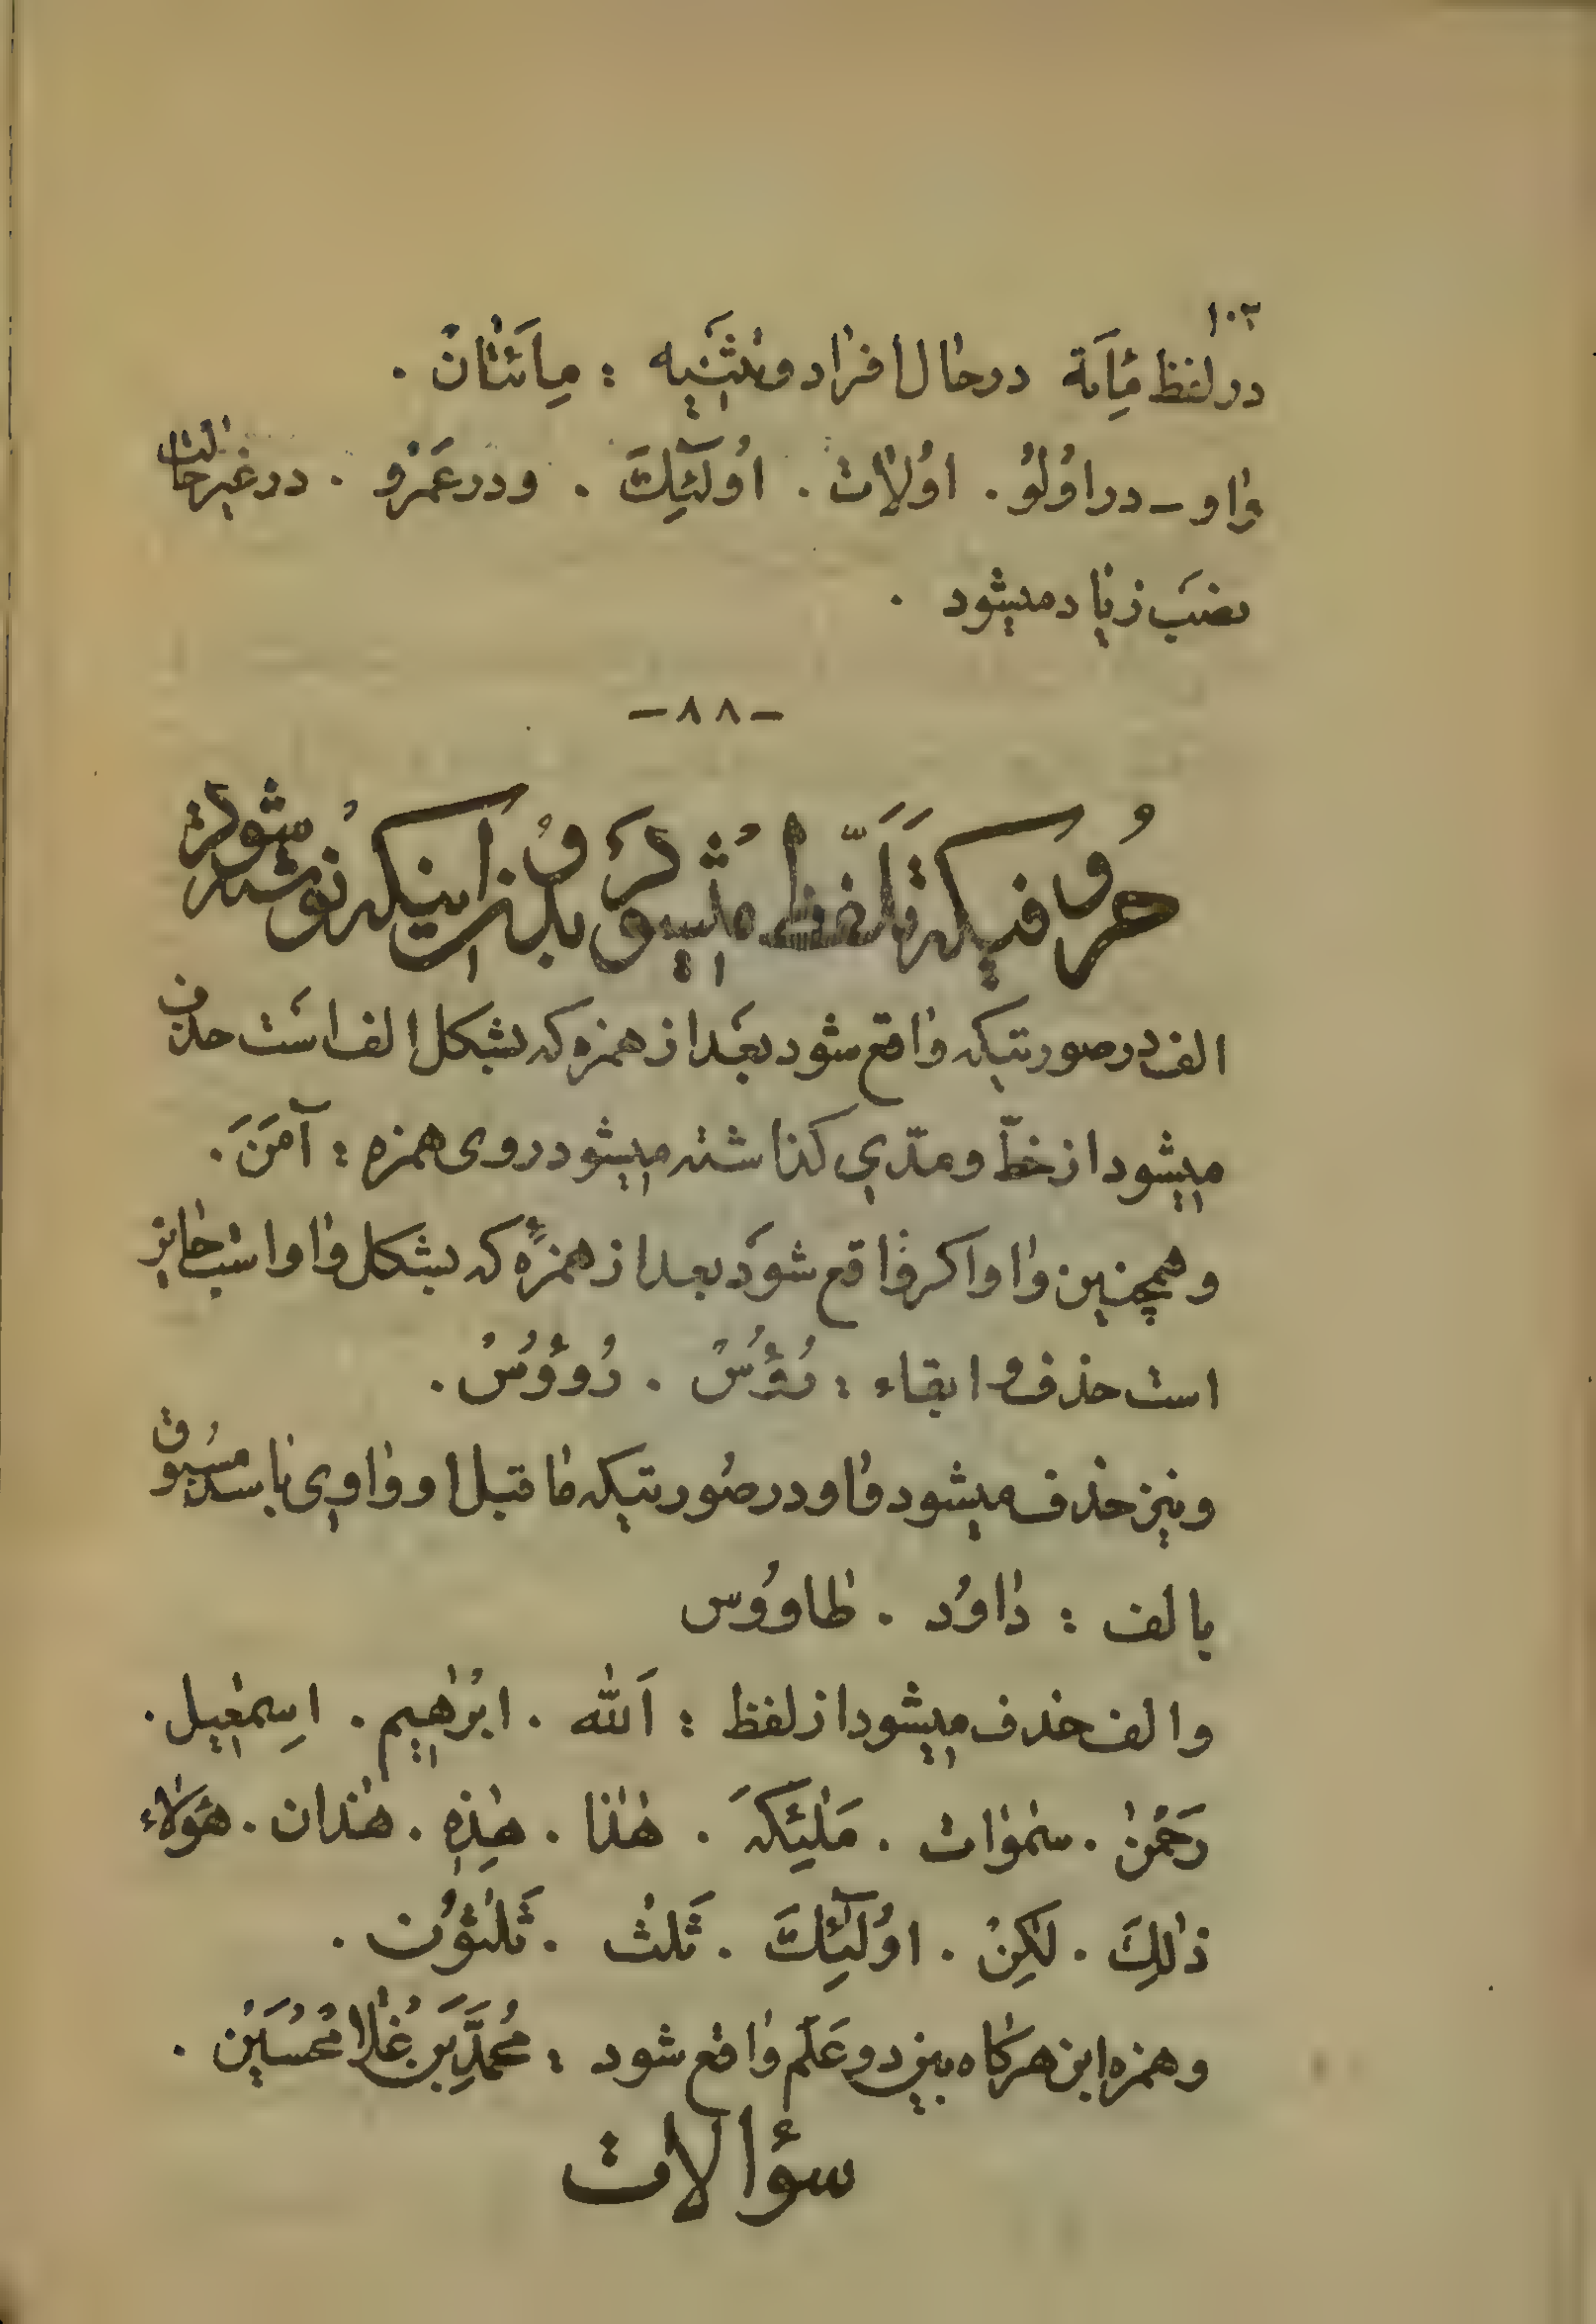 ۱۰۳
در لفظ مِاَئة در حال افراد و تثنیه : مِائَتٰانْ .
وٰاو - در اوُلوُ . اوُلاٰت . اوُلٓئِكَ . و در عَمْرو . در غیر حالت
نصَب زیاد میشود .
- ۸۸ -
حُروفیکه تَلَفّظ مُیشود بدُون اینکه نوُشته شود
الف در صورتیکه وٰاقع شود بعَد از همزه که بشکل الف اسَت حذف
میشود از خطّ و مدّی کذاشته میشود روی همزه : آمَنَ .
و همچنین وٰاو اکر وٰاقع شوَد بعد از همزهٔ که بشکل وٰاو است جٰایز
است حذف و ابقاء : رُؤُسْ . رُوؤُسْ .
و نیز حذف میشود وٰاو در صوُرتیکه مٰا قبل او وٰاوی باشد مسَبوُق
بالف : دٰاوُد . طٰاووُس
و الف حذف میشود از لفظ : اَللّٰه . ابْرٰهیم . اِسمٰعیل .
رَحْمٰنْ . سمٰوٰات . مَلٰئِکَه . هٰذا . هٰذِهِ . هٰذان . هٰؤَلاٰء
ذٰلِكَ . لٰکِنْ . اوُلٰٓئِكَ . ثَلٰث . ثَلٰثوُن .
و همزه ابن هرکاه بین دو عَلَم وٰاقع شود : مُحمَّدِ بَن غُلٰامحُسَیْن .
سؤالات